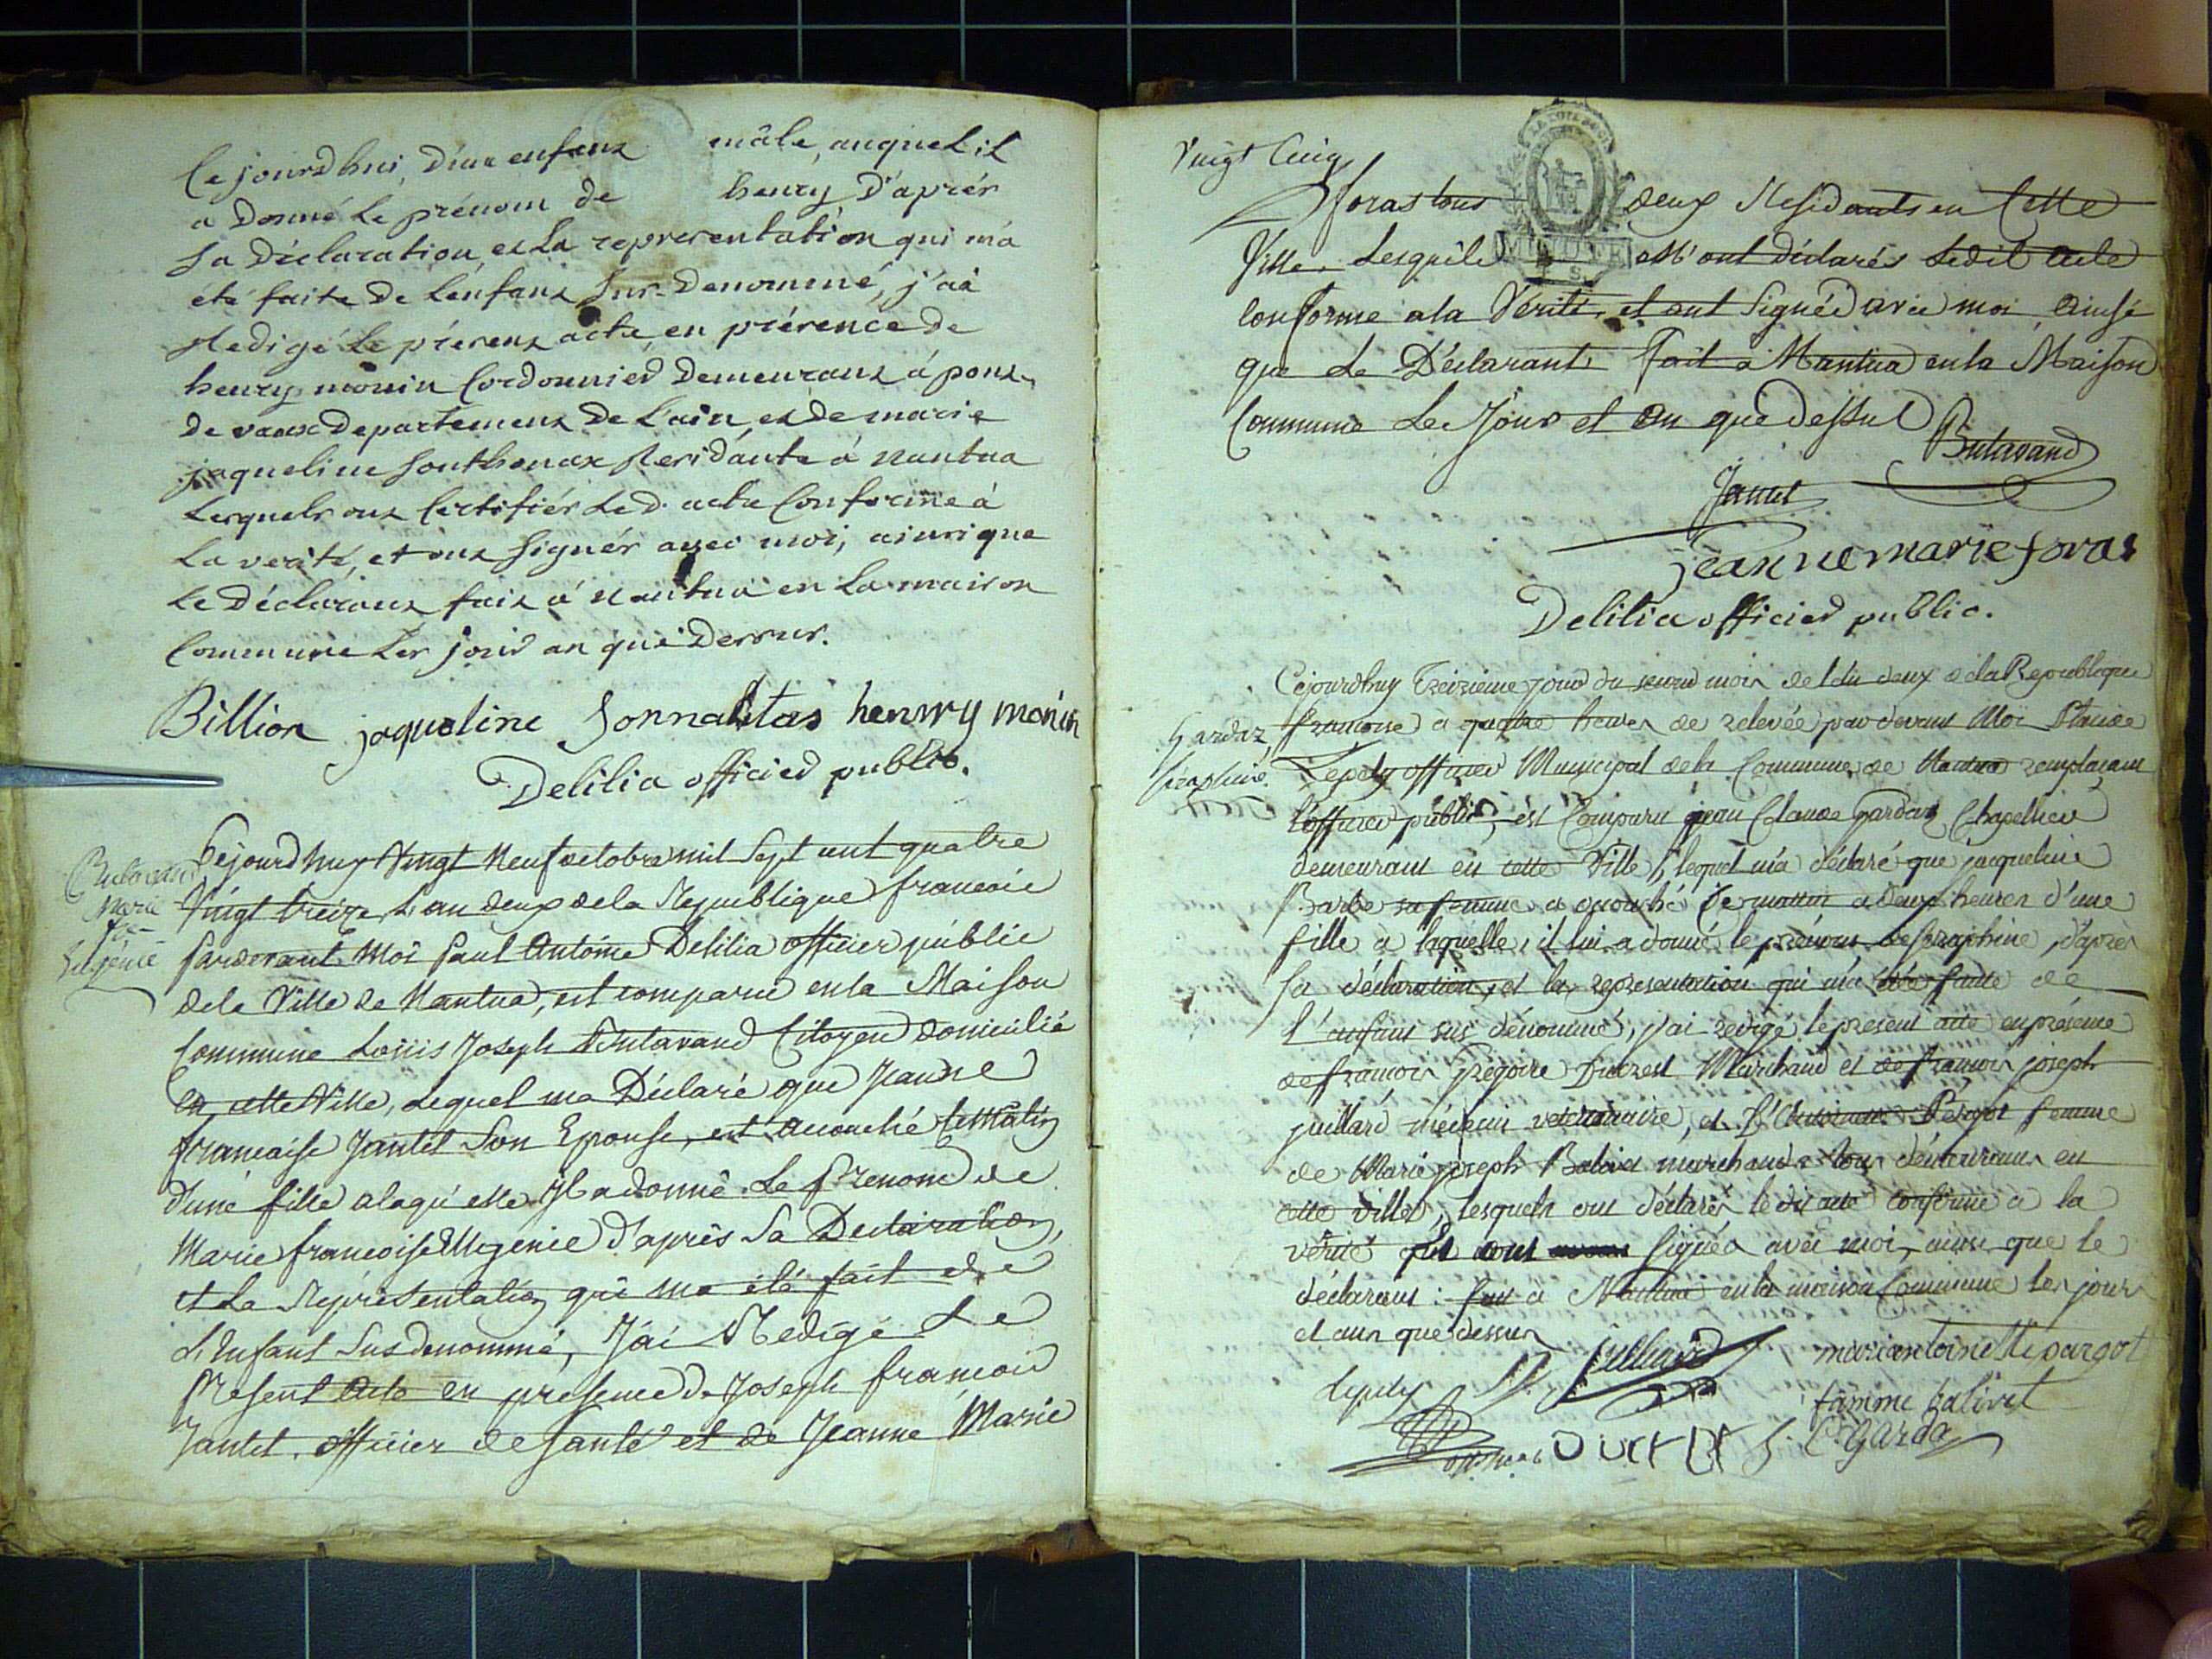 Ce jourd'hui, d'un enfant mâle, auquel il
a Donné Le prénom de henry D'après
Sa Déclaration, et La representation qui m'a
été faite De L'enfant Sus-Denommé, j'ai
Redigé Le présent acte, en présence de
henry monin Cordonnier Demeurant à pont-
de vaux Departement De L'ain, et de marie
jaqueline Sonthonax Residante à Nantua
Lesquels ont Certifiés Led. acte Conforme à
La verité, et ont Signés avec moi, ainsi que
Le Déclarant fait à Nantua en La maison
Commune Les jour an que Dessus.
Billion jaqueline Sonnaltas henrry monin
Delilia officier public.
Butavand
Marie
fse
Eugénie
Cejourdhuy Vingt Neuf octobre mil Sept cent quatre
Vingt treize, L'an deux de la Republique francoise
Pardevant Moi Paul Antoine Delilia officier public
de la Ville de Nantua, est comparu en la Maison
Commune Loüis Joseph Butavand Citoyen domicilié
En cette Ville, Lequel ma Déclaré que Jeanne
francaise Jantet Son Epouse, est accouché Ce Matin
d'une fille alaqu'elle Il a donné Le Prenom de
Marie francoise Eugenie d'après Sa Declaration,
et La Représentation qui ma été fait de
L'Enfant Susdenommé, J'ai Redigé Le
Présent Acte en présence de Joseph francois
Jantet, officier de Santé et de Jeanne Marie
Vingt Cinq
foras tous deux Residants en Cette
Ville, Lesquels M'ont déclarés Ledit Acte
Conforme a la Vérité, et ont Signés avec moi Ainsi
que Le Déclarant Fait a Nantua en la Maison
Commune Les Jour et An que dessus
Butavand
Jantet
jeanne marie foras
Delilia officier public.
Gardaz
seraphine.
Cejourdhuy Treizieme jour du second mois de l'an deux de la Republique
francoise à quatre heures de relevée par devant Moi Placide
Lepely officier Municipal de la Commune de Nantua remplaçant
l'officier public, est Comparu jean Claude Gardaz Chapellier
demeurant en cette Ville, lequel m'a déclaré que jacqueline
Barbe sa femme a accouché ce matin a deux heures d'une
fille à laquelle, il lui a donné le prénom de seraphine, d'après
sa déclaration, et la representation qui m'a été faitte de
l'enfant sus dénommé, j'ai redigé le present acte en présence
de françois Grégoire Ducrest Marchand et de françois joseph
juillard médecin veterinaire, et d'Antoinette Pargot femme
de Marie joseph Balivet marchand tous démeurans en
cette ville, lesquels ont déclarés le dit acte conforme a la
vérité et ont signés avec moi, ainsi que le
déclarant : fait a Nantua en la maison Commune les jour
et an que dessus
Juilliard marieantoinette pargot
Lepely famme balivet
DUCRET J. C. Garda